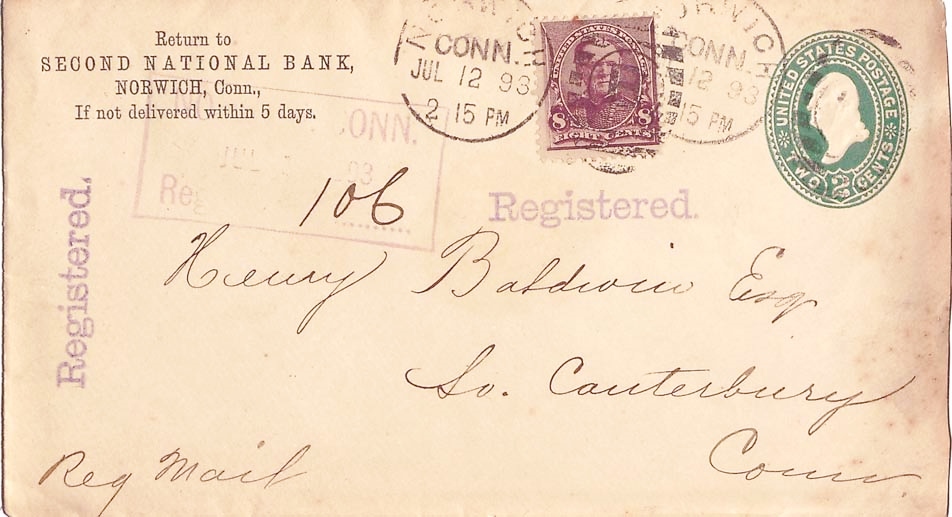 Return to
SECOND NATIONAL BANK,
NORWICH, Conn.,
If not delivered within 5 days.
CONN.
JUL 12 93
2 15 PM
UNITED STATES POSTAGE
8 8
EIGHT CENTS
NORWICH
CONN.
12 93
15 PM
UNITED STATES POSTAGE
TWO 2 CENTS
CONN.
JUL 93
Reg
106
Registered.
Registered.
Henry Baldwin Esq
So. Canterbury
Conn.
Reg Mail